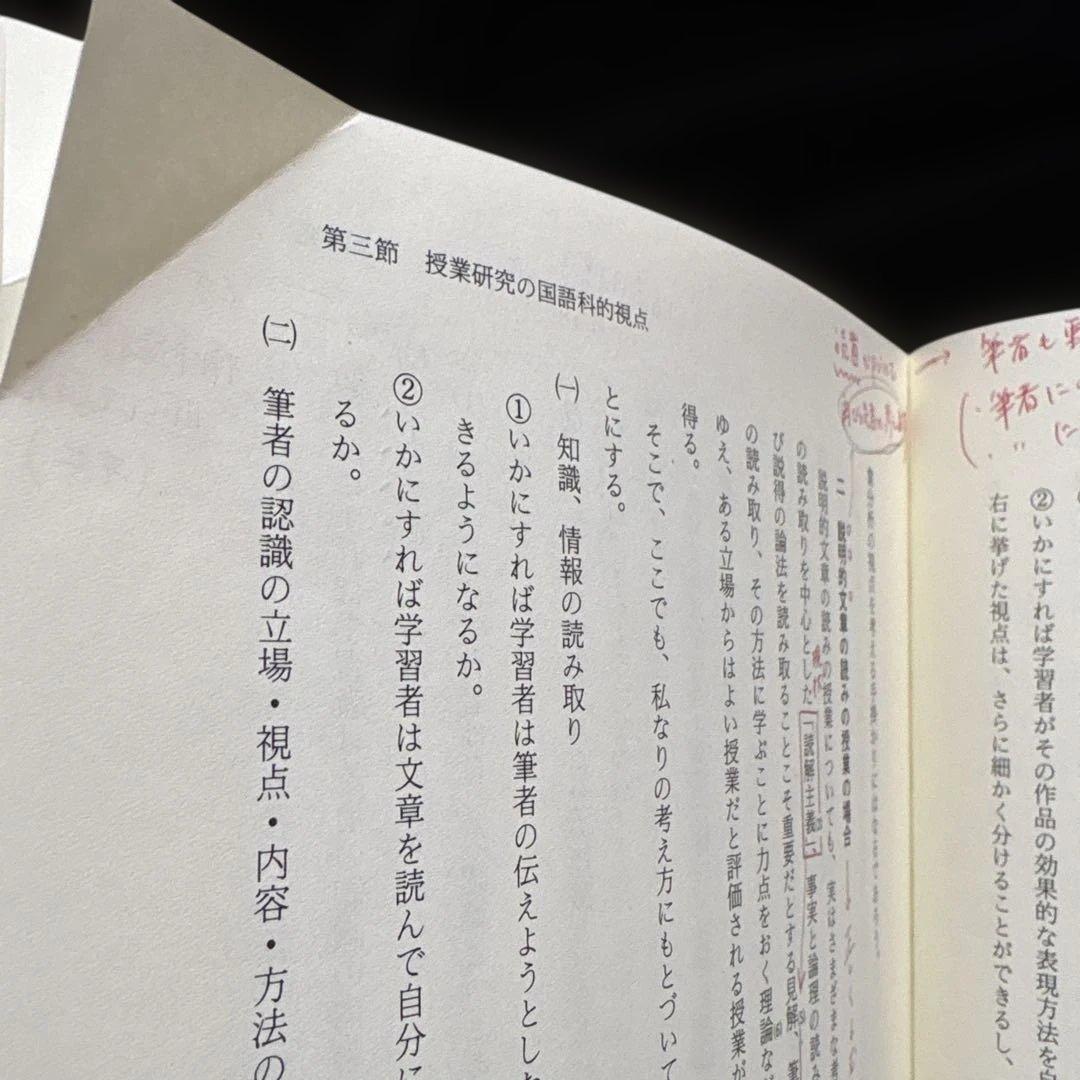 筆者も
筆者に
②いかにすれば学習者がその作品の効果的な表現方法を
右に挙げた視点は、さらに細かく分けることができるし、
第三節 授業研究の国語科的視点
二 説明的文章の読みの授業の場合
説明的文章の読みの授業についても、実はさまざまな考
の読み取りを中心とした「読解主義」、事実と論理の読み
び説得の論法を読み取ることこそ重要だとする見解、筆
の読み取り、その方法に学ぶことに力点をおく理論な
ゆえ、ある立場からはよい授業だと評価される授業が
得る。
そこで、ここでも、私なりの考え方にもとづいて
とにする。
㈠ 知識、情報の読み取り
①いかにすれば学習者は筆者の伝えようとし
きるようになるか。
②いかにすれば学習者は文章を読んで自分に
るか。
㈡ 筆者の認識の立場・視点・内容・方法の